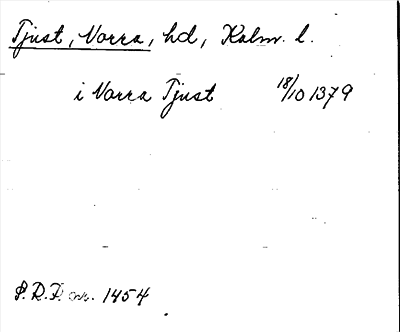 Tjust, Norra, hd, Kalm. l.
i Norra Tjust 18/10 1379
S.R.P. nr. 1454